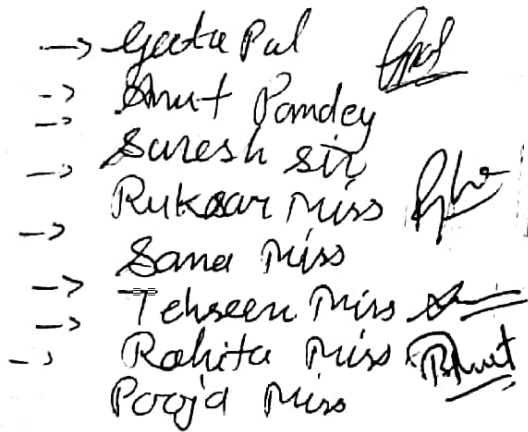 → Geeta Pal
→ Amit Pandey
→ Suresh Sir
→ Rukasar Miss
→ Sana Miss
→ Tehseen Miss
→ Rohita Miss
→ Pooja Miss